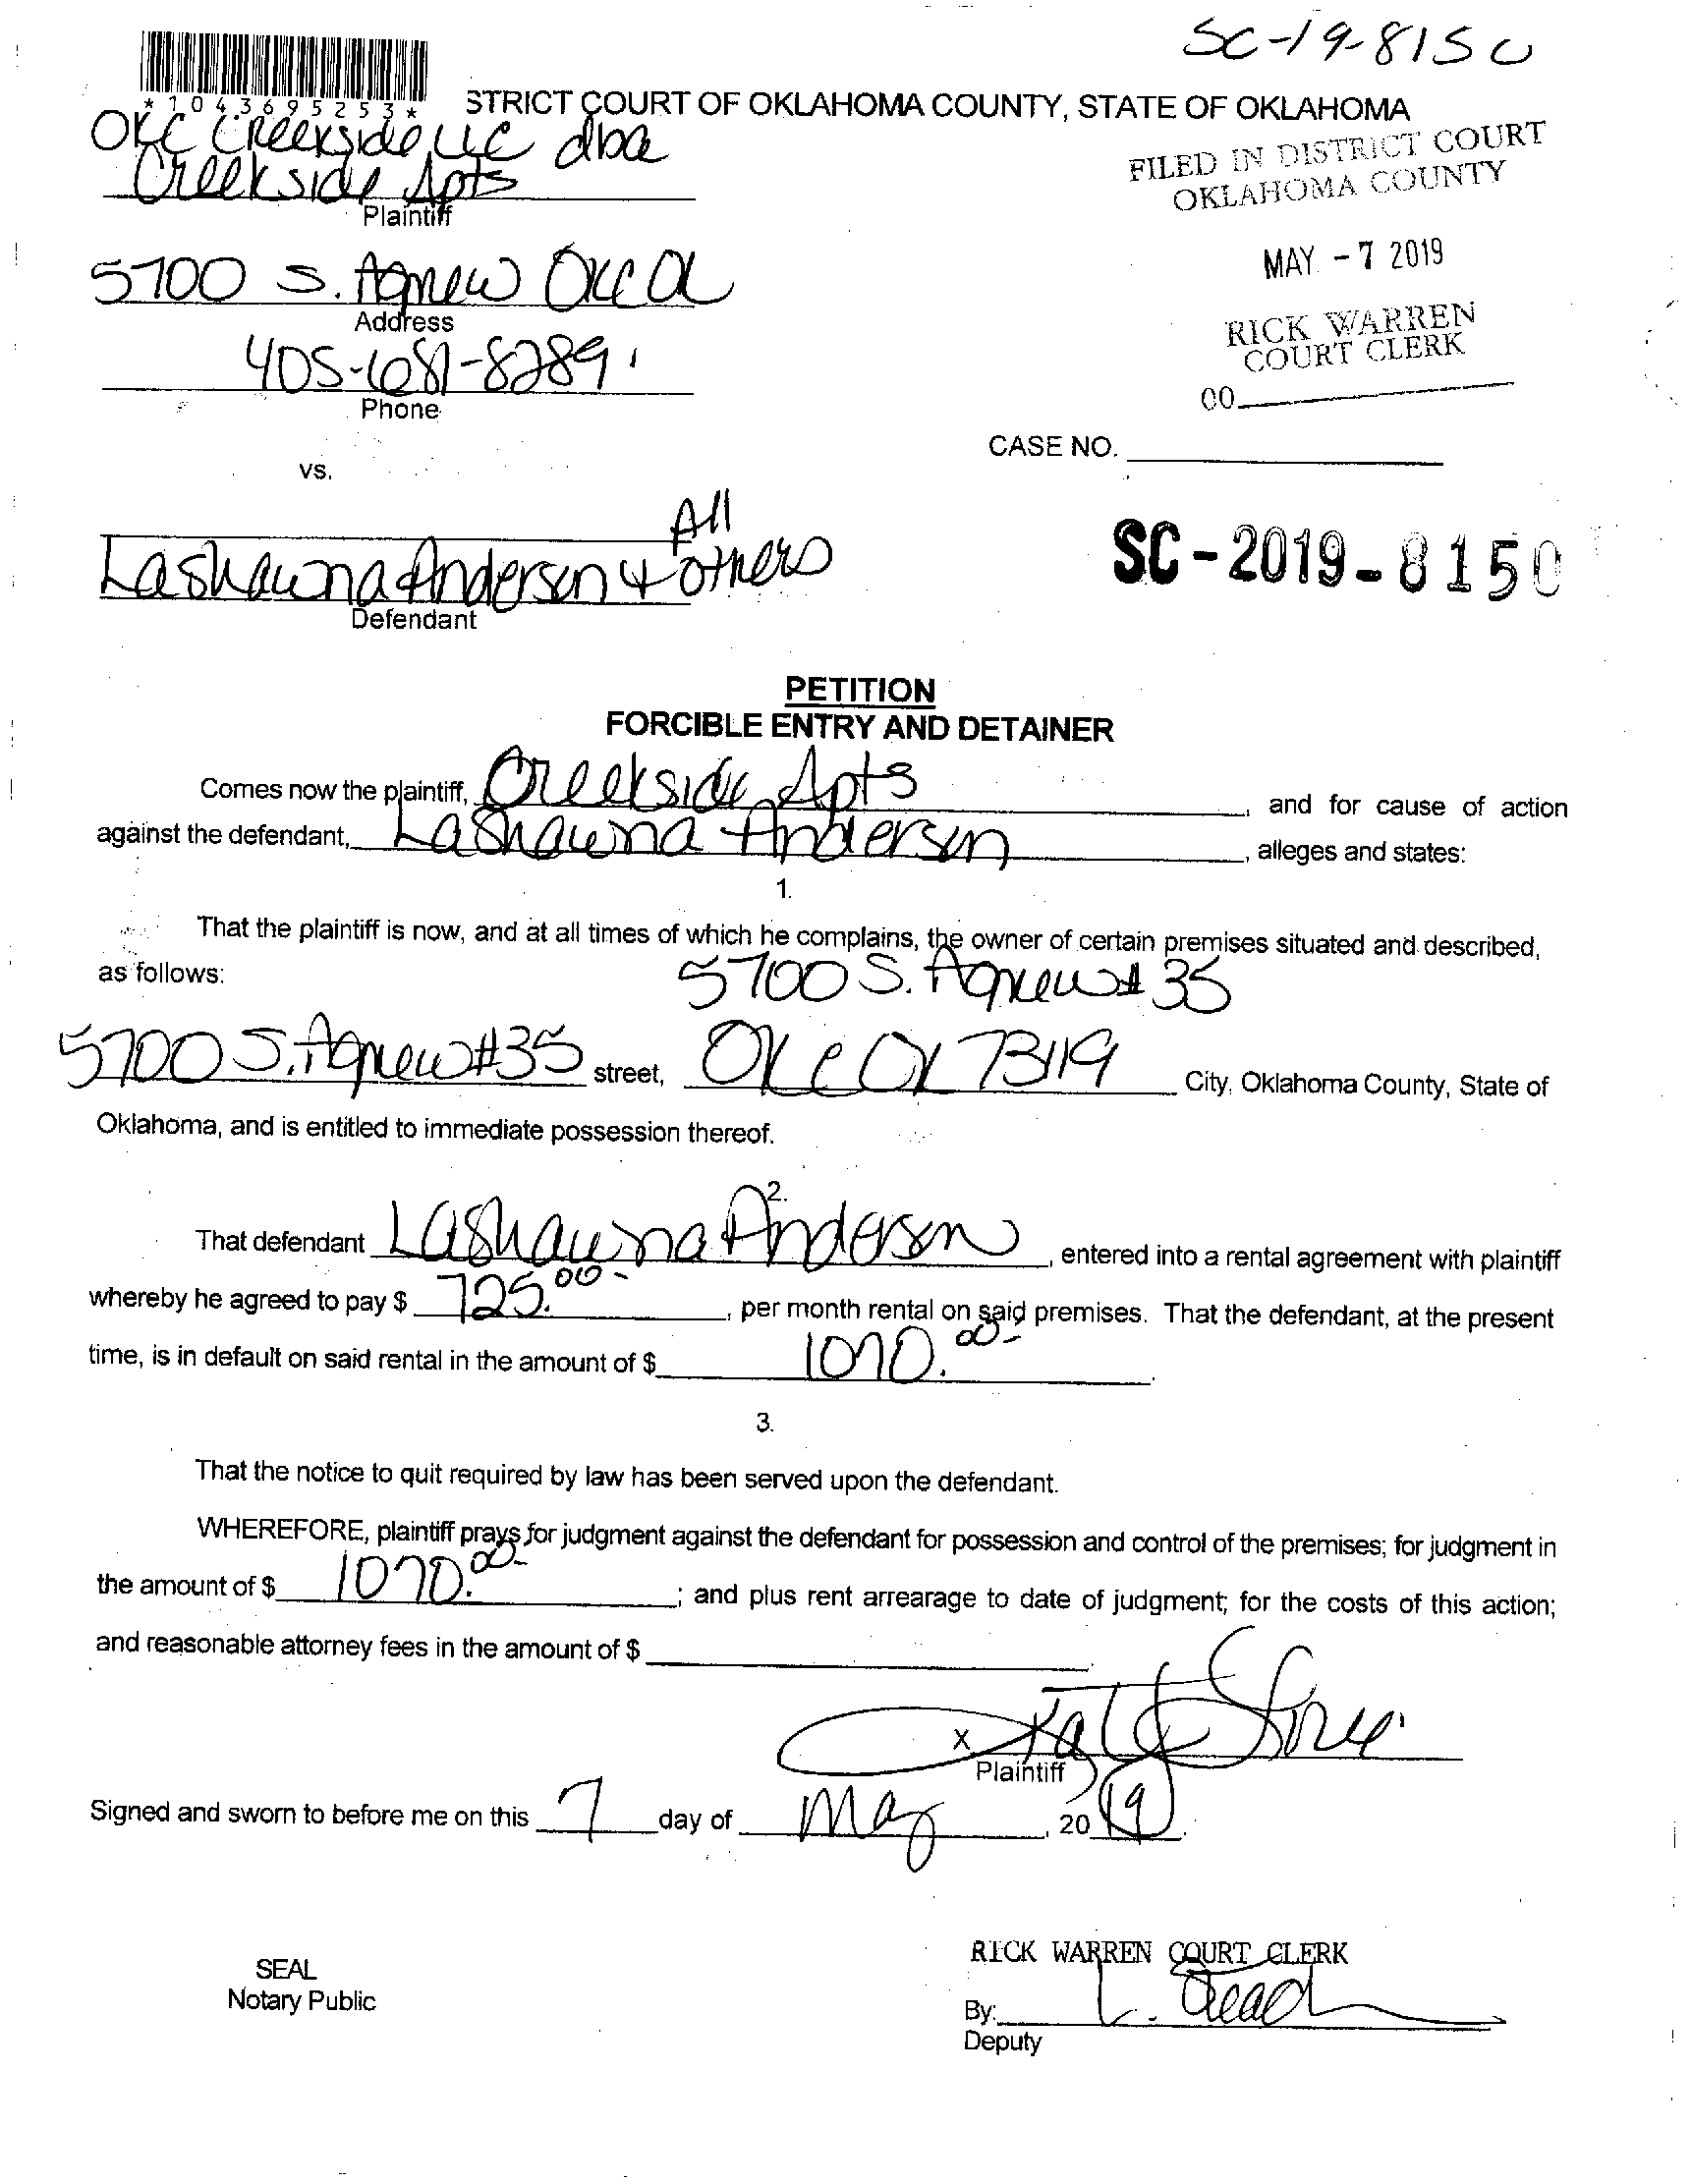 SC-19-8150
*1043695253*
STRICT COURT OF OKLAHOMA COUNTY, STATE OF OKLAHOMA
OKC Creekside LLC dba
Creekside Apts
Plaintiff
FILED IN DISTRICT COURT
OKLAHOMA COUNTY
5700 S. Agnew OKC OK
Address
MAY - 7 2019
405-681-8289
Phone
RICK WARREN
COURT CLERK
00
CASE NO.
vs.
All
Lashauna Anderson & others
Defendant
SC-2019-8150
PETITION
FORCIBLE ENTRY AND DETAINER
Comes now the plaintiff, Creekside Apts, and for cause of action
against the defendant, Lashauna Anderson, alleges and states:
1.
That the plaintiff is now, and at all times of which he complains, the owner of certain premises situated and described,
as follows: 5700 S. Agnew # 35
5700 S. Agnew #35 street, OKC OK 73119 City, Oklahoma County, State of
Oklahoma, and is entitled to immediate possession thereof.
2.
That defendant Lashauna Anderson, entered into a rental agreement with plaintiff
whereby he agreed to pay $ 725.00-, per month rental on said premises. That the defendant, at the present
time, is in default on said rental in the amount of $ 1070.00-.
3.
That the notice to quit required by law has been served upon the defendant.
WHEREFORE, plaintiff prays for judgment against the defendant for possession and control of the premises; for judgment in
the amount of $ 1070.00-; and plus rent arrearage to date of judgment; for the costs of this action;
and reasonable attorney fees in the amount of $
X
Plaintiff
Signed and sworn to before me on this 7 day of May, 2019.
SEAL
Notary Public
RICK WARREN COURT CLERK
By:
Deputy